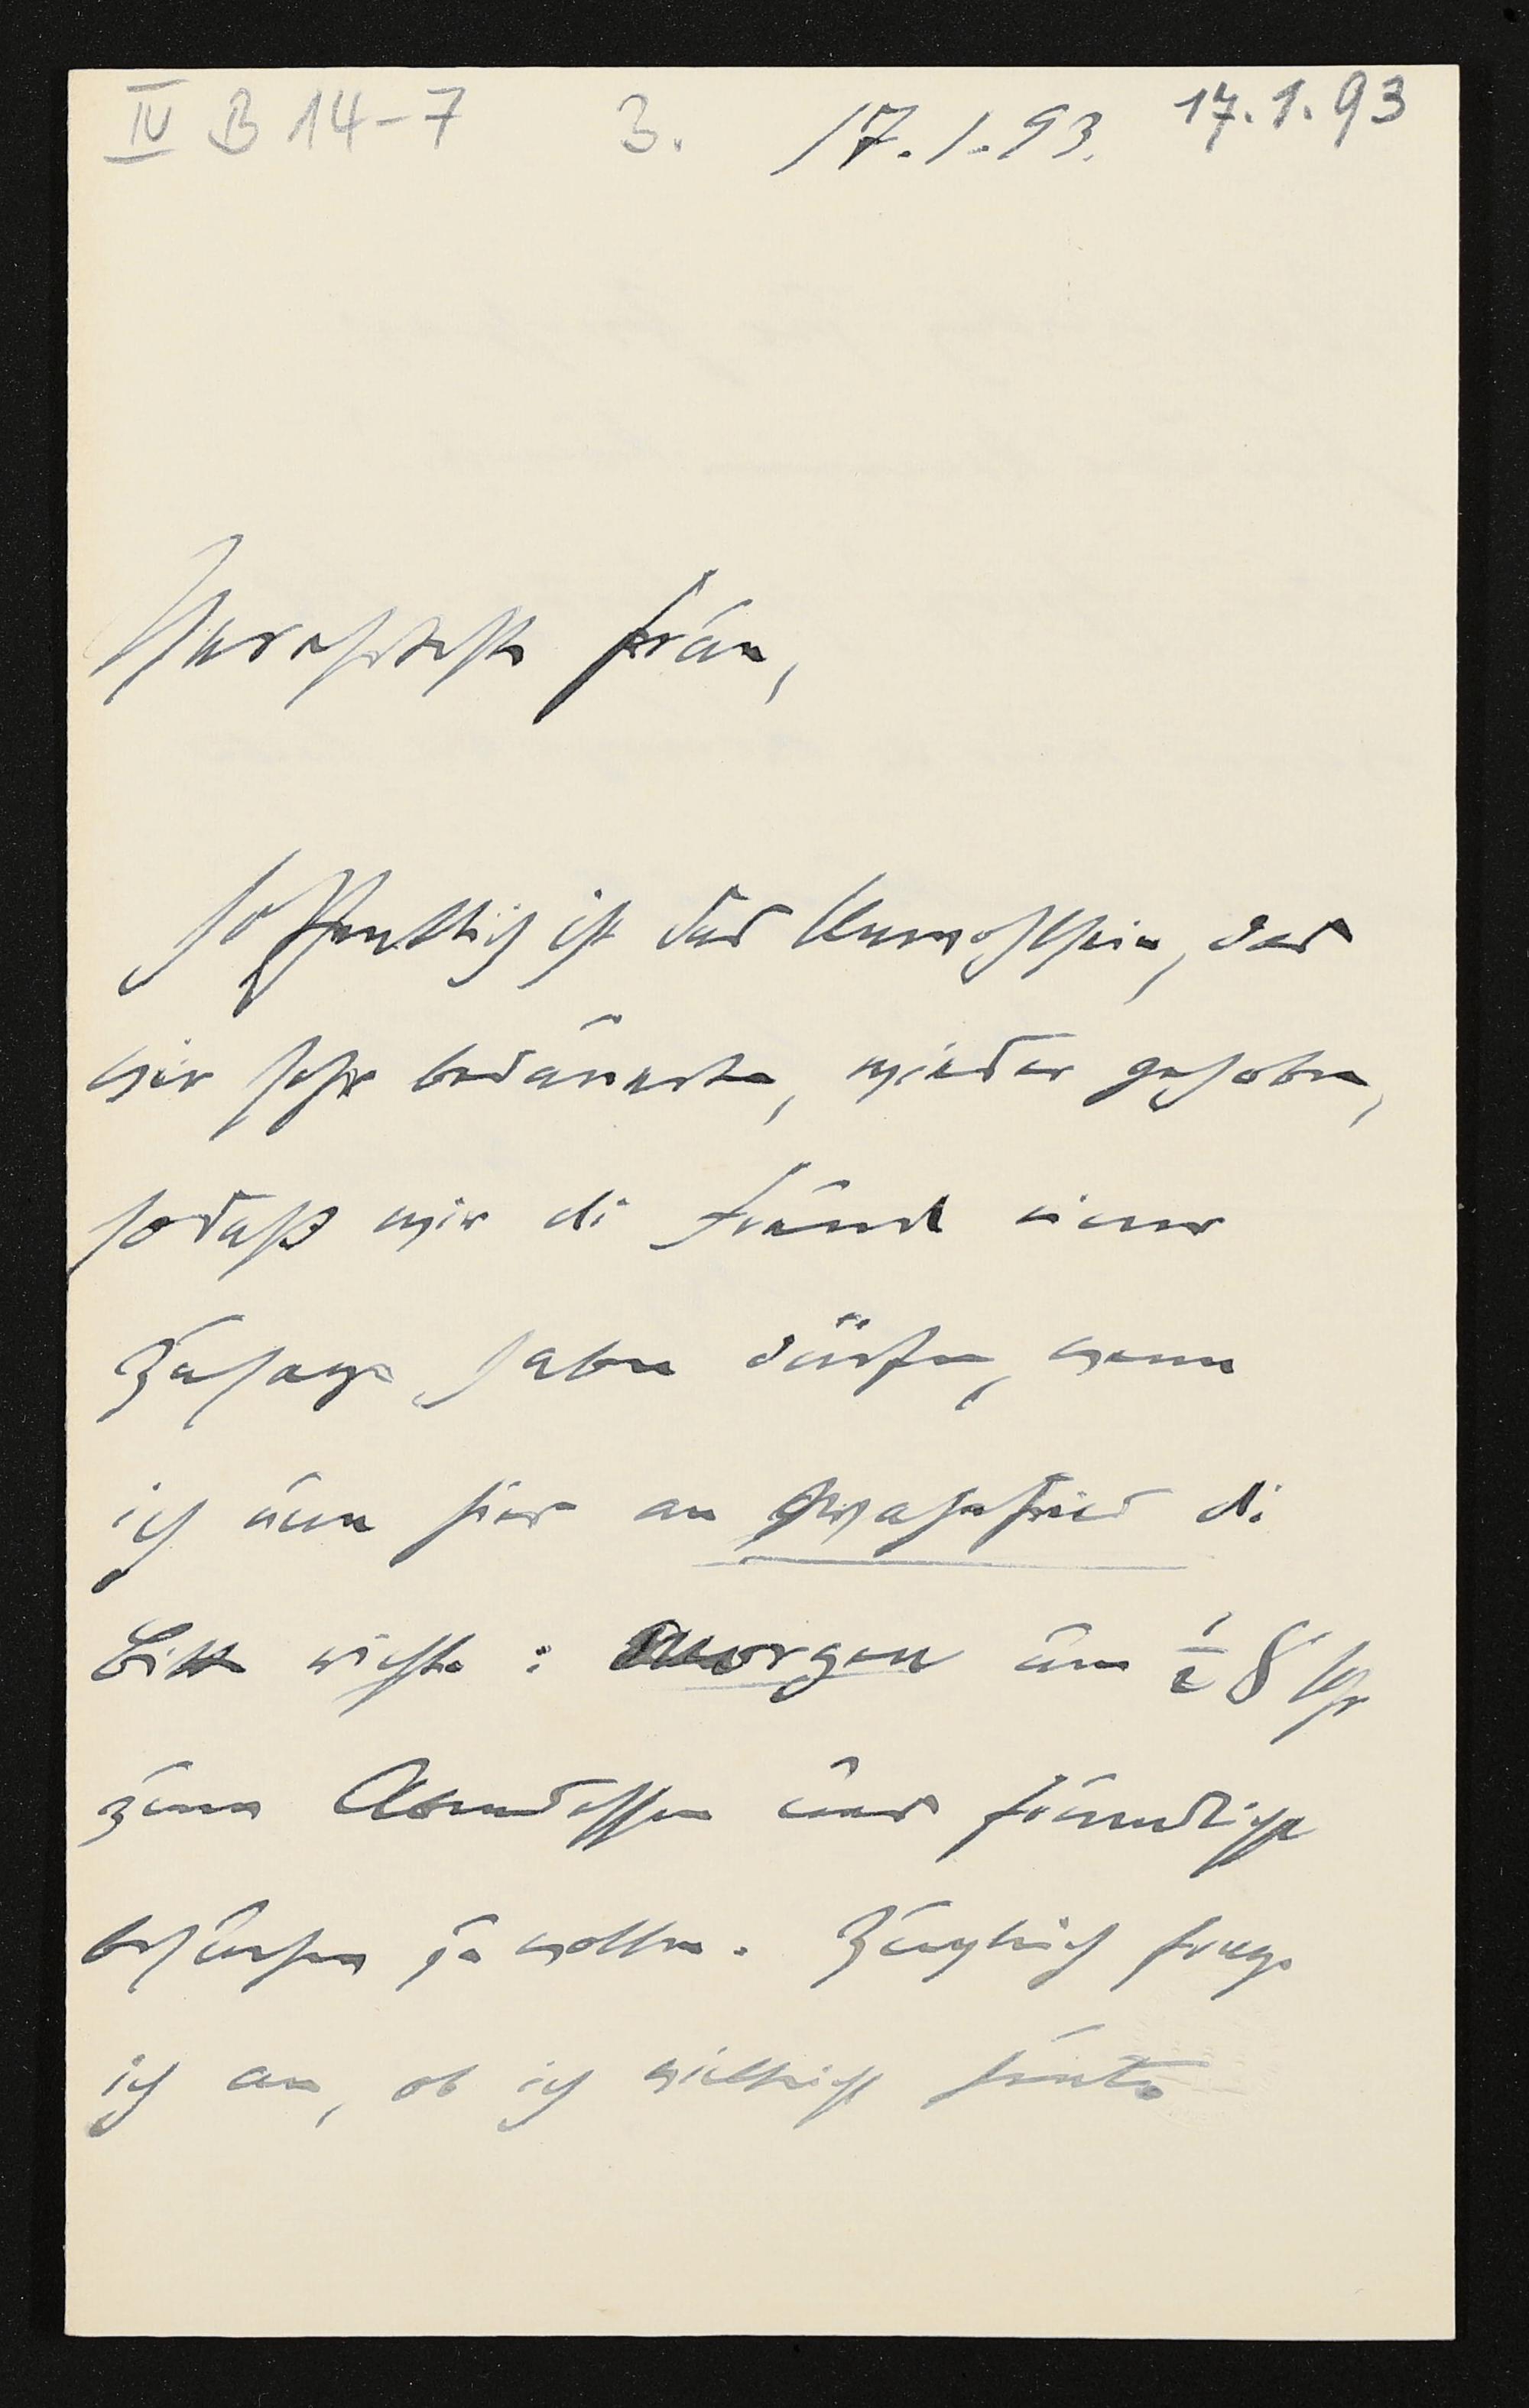 IV B 14-7 3. 17.1.93. 17.1.93
Hochverehrteste Frau,
hoffentlich ist das Unwohlsein, das
wir sehr bedauerten, wieder gehoben,
sodaß wir die Freude einer
Zusage haben dürfen, wenn
ich nun hier an Wahnfried die
Bitte richte: Morgen um ½ 8 Uhr
zum Abendessen uns freundlichst
besuchen zu wollen. Zugleich frage
ich an, ob ich vielleicht heute